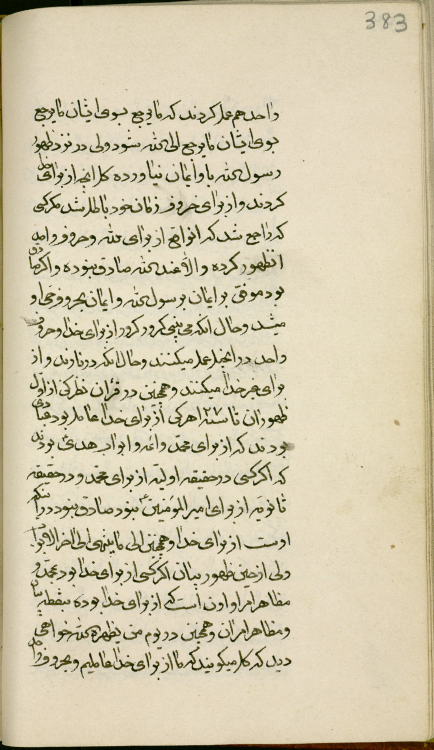 383
واحد هم عمل کردند که ما یرجع بسوی ایشان ما یرجع
بسوی ایشان ما یرجع الی الله شود ولی در نزد ظهور
رسول الله باو ایمان نیاورده کل آنچه از برای خدا
کردند و از برای حروف زمان خود باطل شد مگر کسی
که راجع شد که انواع از برای الله و حروف واحد
انظهور کرده و الا عند الله صادق نبوده و اگر صادق
بود موفق بر ایمان برسول الله و ایمان بحروف حی او
میشد و حال آنکه می بینی کرور کرور از برای خدا و حروف
واحد در انجیل عمل میکنند و حال آنکه در نارند و از
برای غیر خدا میکنند و همچنین در قرآن نظر کن از اول
ظهور ان تا سنه ۱۲۷۰ هر کس از برای خدا عامل بود صادق
بودند که از برای محمد و ائمه و ابواب هدی بودند
که اگر کسی در حقیقه اولیه از برای محمد و در حقیقه
ثانویه از برای امیر المؤمنین ع نبود صادق نبود در آنکه
اوست از برای خدا و همچنین الی ما ینتهی الی آخر الابواب
ولی از حین ظهور بیان اگر کسی از برای خدا بود بمحمد و
مظاهر امر او ان است که از برای خدا بوده بنقطه بیان
و مظاهر امر ان و همچنین در یوم من یظهره الله خواهی
دید که کل میگویند که ما از برای خدا عاملیم و بحروف واحد